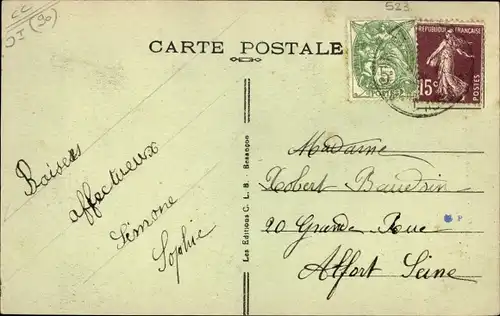 CC
DI (90)
523
CARTE POSTALE
5c
POSTES
RÉPUBLIQUE FRANÇAISE
15c
POSTES
Baisers
affectueux
Simone
Sophie
Les Editions C. L. B. Bessegne
Madame
Robert Baudoin
20 Grande Rue
Alfort Seine